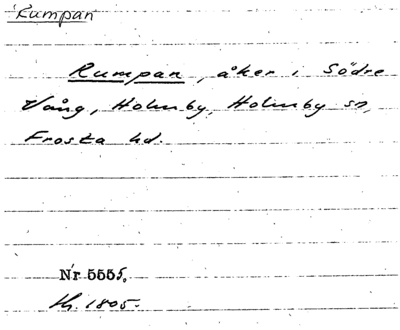 Rumpan
Rumpan, åker i Södre
Vång, Holmby, Holmby sn,
Frosta hd.
Nr 5555.
1805.